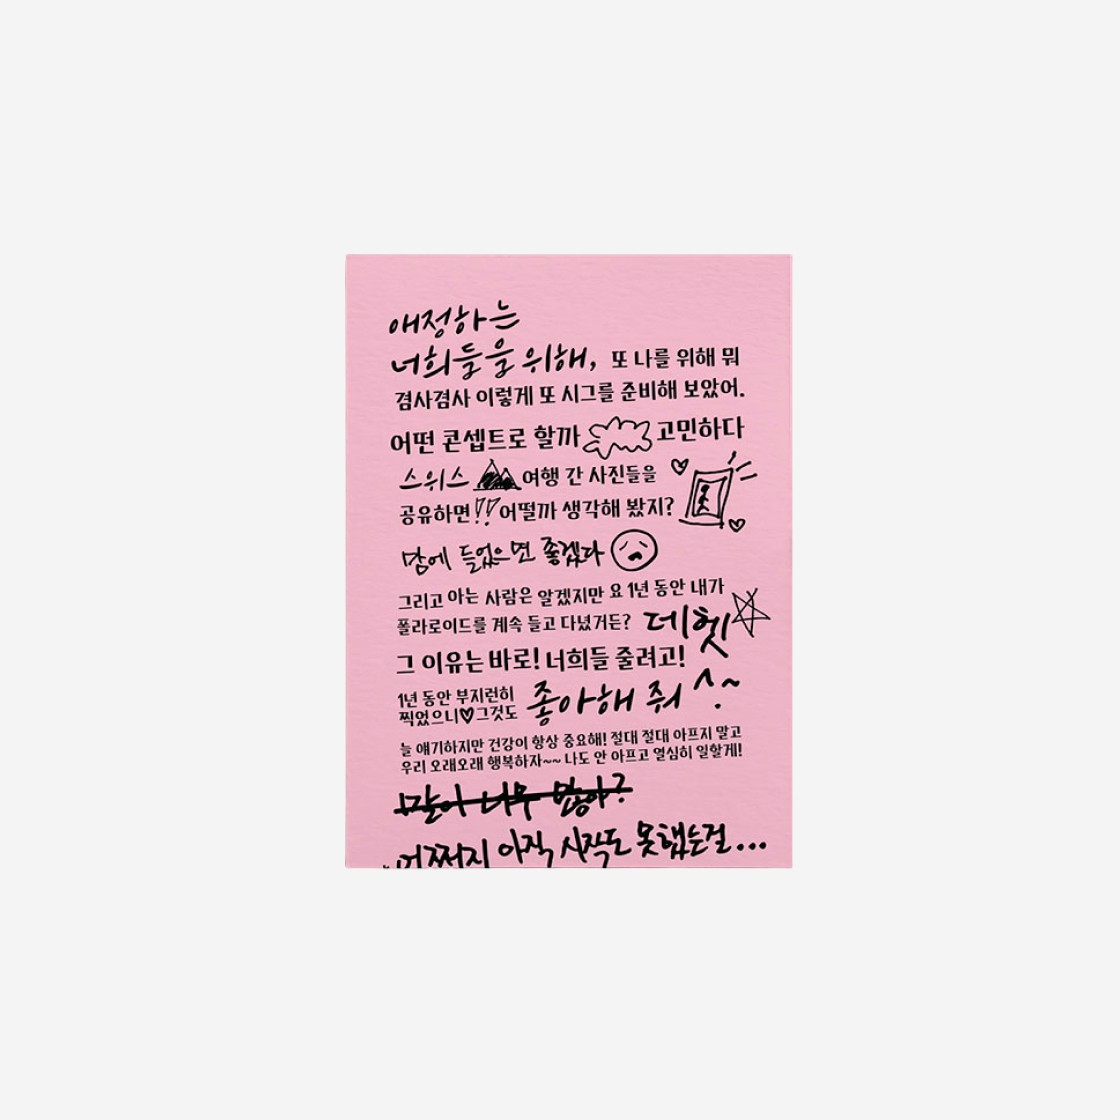 애정하는
너희들을 위해, 또 나를 위해 뭐
겸사겸사 이렇게 또 시그를 준비해 보았어.
어떤 콘셉트로 할까 고민하다
스위스 여행 간 사진들을
공유하면!! 어떨까 생각해 봤지?
맘에 들었으면 좋겠다
그리고 아는 사람은 알겠지만 요 1년 동안 내가
폴라로이드를 계속 들고 다녔거든? 데헷
그 이유는 바로! 너희들 줄려고!
1년 동안 부지런히
찍었으니♡그것도 좋아해 줘^.~
늘 얘기하지만 건강이 항상 중요해! 절대 절대 아프지 말고
우리 오래오래 행복하자~~ 나도 안 아프고 열심히 일할게!
말이 너무 많아?
어쩌지 아직 시작도 못했는걸...